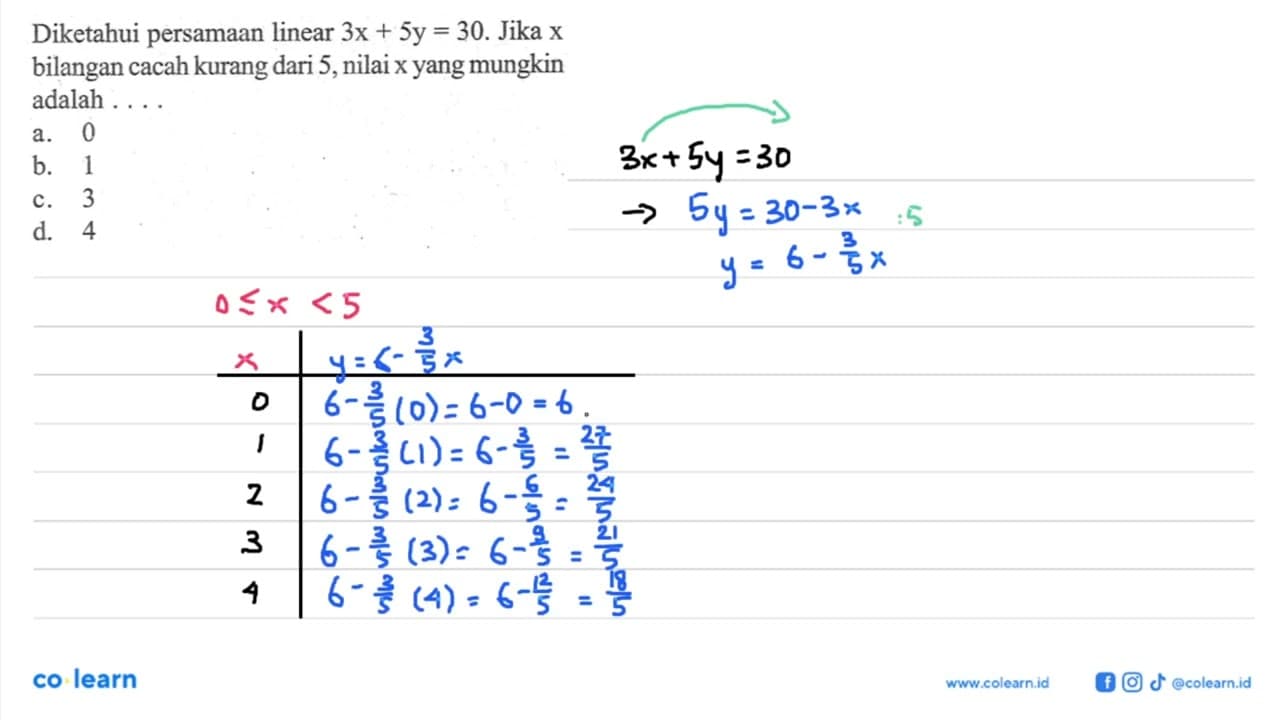 Diketahui persamaan linear 3x + 5y = 30. Jika x
bilangan cacah kurang dari 5, nilai x yang mungkin
adalah . . . .
a. 0
b. 1
c. 3
d. 4
3x + 5y = 30
→ 5y = 30 - 3x :5
y = 6 - 3/5 x
0 ≤ x < 5
x y = 6 - 3/5 x
0 6 - 3/5 (0) = 6 - 0 = 6 .
1 6 - 3/5 (1) = 6 - 3/5 = 27/5
2 6 - 3/5 (2) = 6 - 6/5 = 24/5
3 6 - 3/5 (3) = 6 - 9/5 = 21/5
4 6 - 3/5 (4) = 6 - 12/5 = 18/5
co learn
www.colearn.id @colearn.id